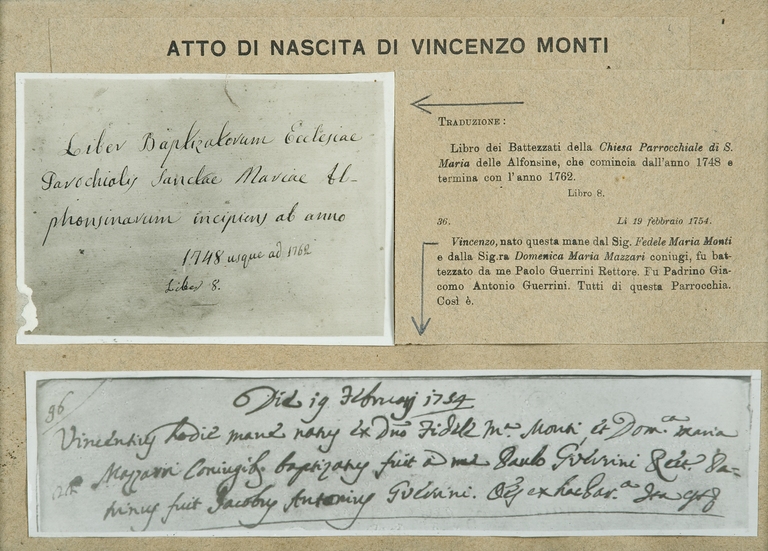 ATTO DI NASCITA DI VINCENZO MONTI
Liber Baptizatorum Ecclesiae
Parochialis Sanctae Mariae Al-
phonsinarum incipiens ab anno
1748 usque ad 1762
Liber 8.
TRADUZIONE:
Libro dei Battezzati della Chiesa Parrocchiale di S.
Maria delle Alfonsine, che comincia dall'anno 1748 e
termina con l'anno 1762.
Libro 8.
36. Li 19 febbraio 1754.
Vincenzo, nato questa mane dal Sig. Fedele Maria Monti
e dalla Sig.ra Domenica Maria Mazzari coniugi, fu bat-
tezzato da me Paolo Guerrini Rettore. Fu Padrino Gia-
como Antonio Guerrini. Tutti di questa Parrocchia.
Così è.
36
Die 19 Februarij 1754
Vincentius hodie mane natus ex Dno Fidele Ma. Monti et Dom.ca Maria
Mazzarri Coniugib. baptizatus fuit a me Paulo Guerrini Rect. Pa-
trinus fuit Jacobus Antonius Guerrini. ex hac Par.a Ita est